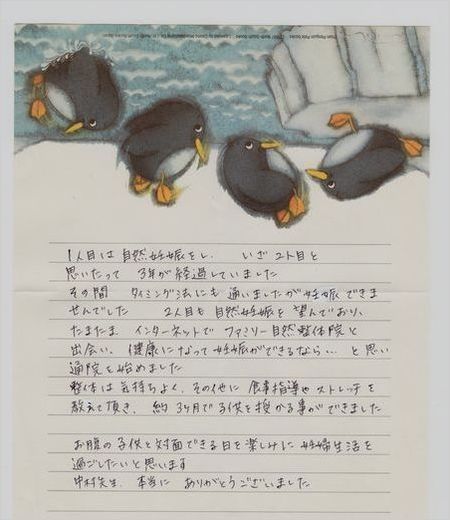 1人目は自然妊娠をし、 いざ2人目と
思いたって 3年が経過していました
その間 タイミング法にも 通いましたが妊娠できま
せんでした 2人目も自然妊娠を望んでおり、
たまたま インターネットで ファミリー自然整体院と
出会い、健康になって妊娠ができるなら… と思い
通院を始めました
整体は気持ちよく、その他に 食事指導やストレッチを
教えて頂き、 約3ヶ月で子供を授かる事ができました
お腹の子供と対面できる日を楽しみに 妊婦生活を
過ごしたいと思います
中村先生、本当に ありがとうございました